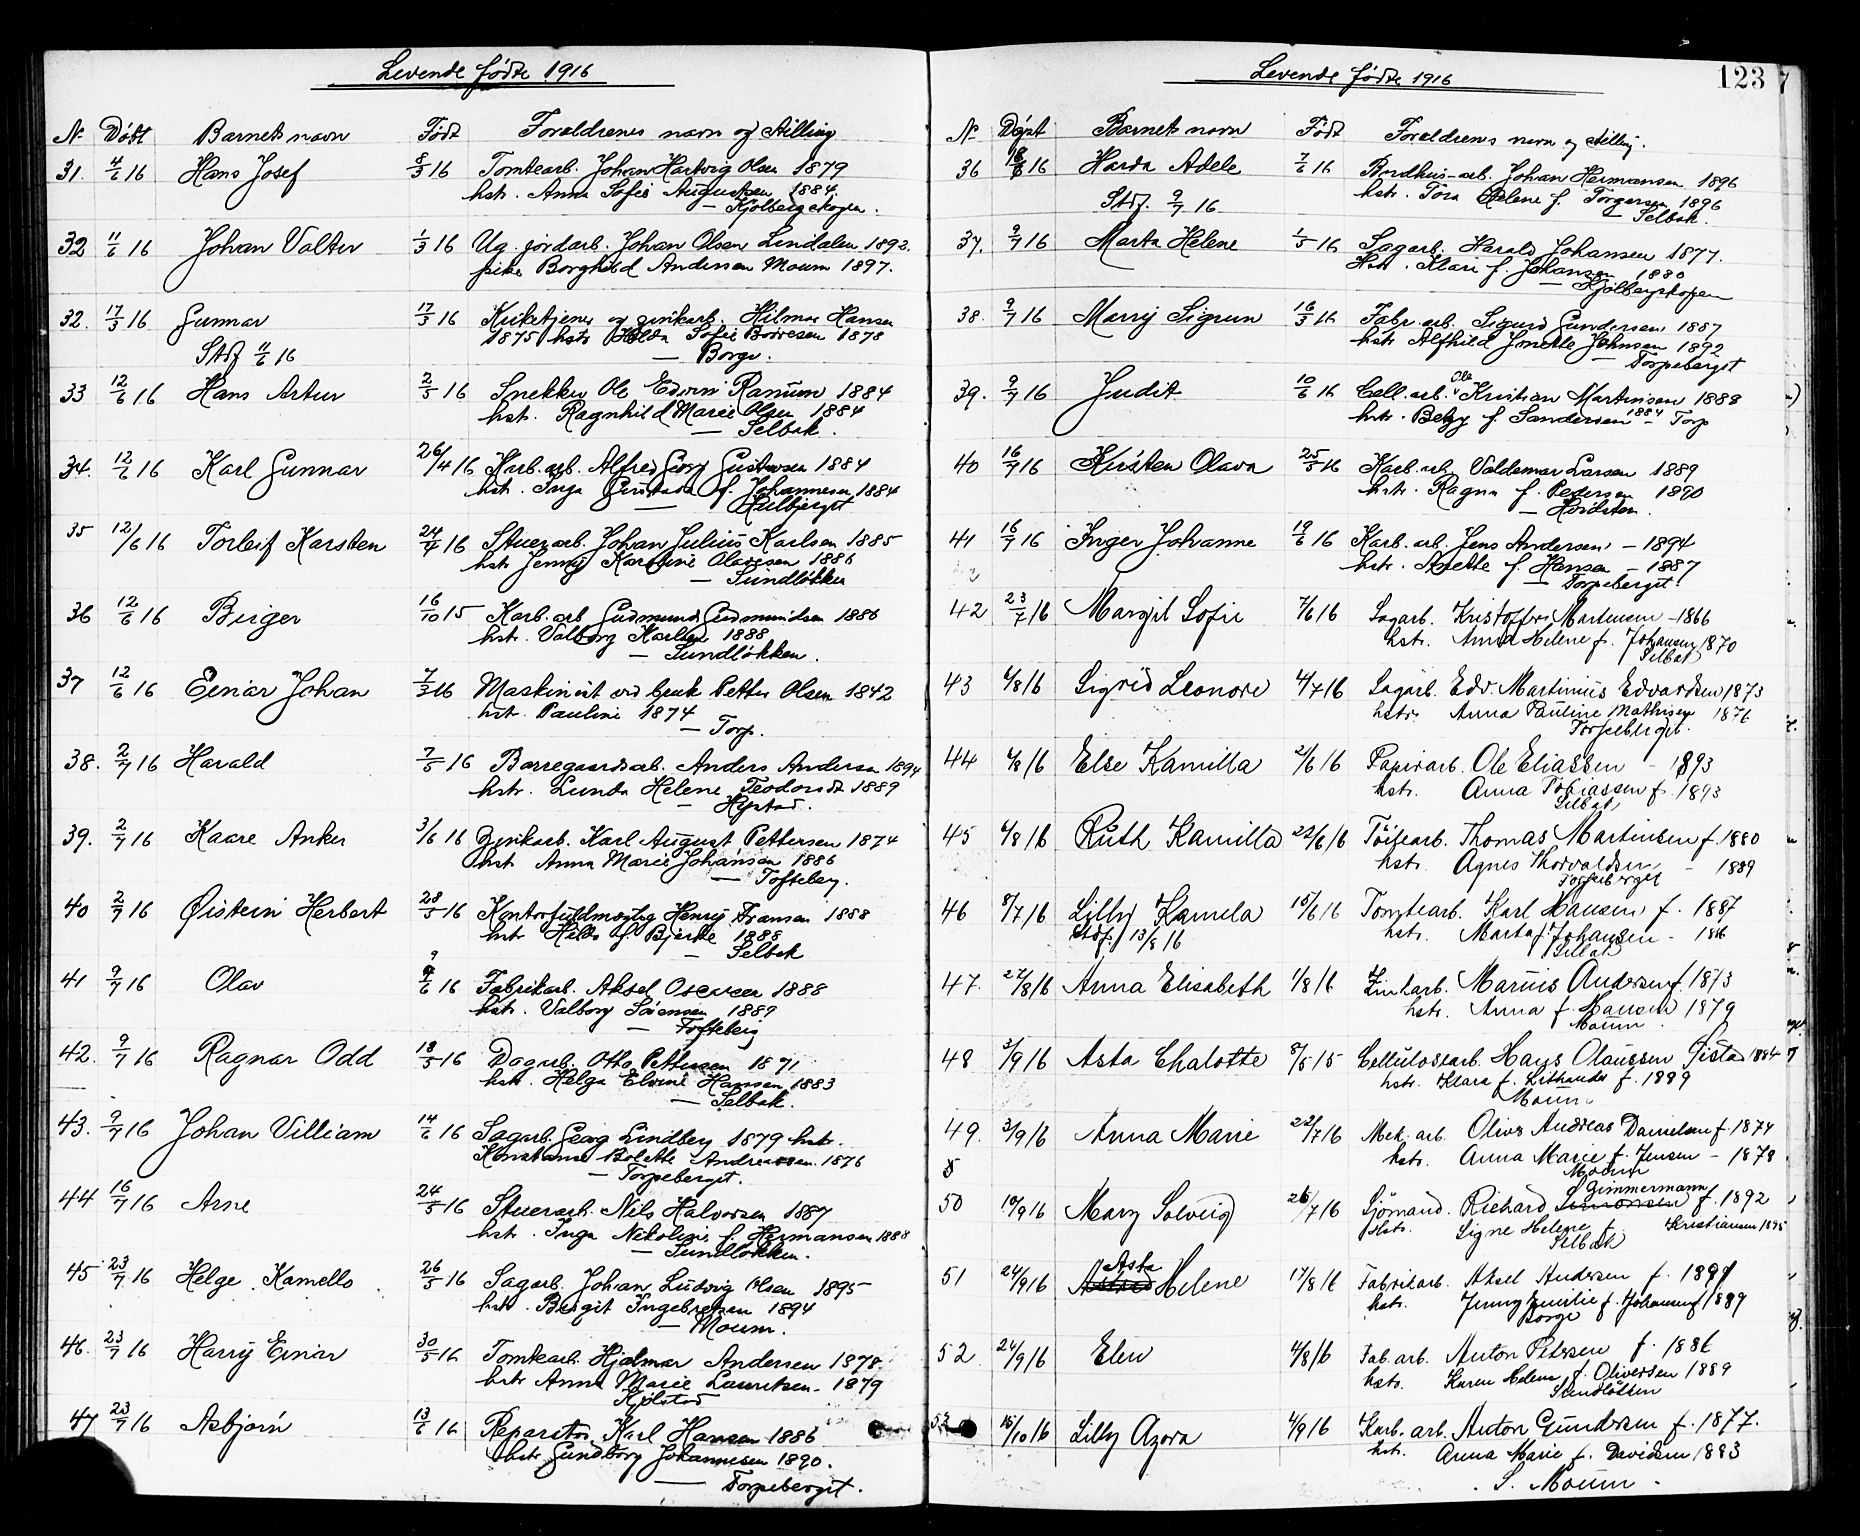 Levende fødte 1916
No Døbt Barnets navn Født Foreldrenes navn og Stilling
31. 4/6 16 Hans Josef 8/3 16 Tomtearb. Johan Hartvig Olsen 1879
hstr. Anna Sofie Augustsen 1884.
— Kjølbergskogen.
32 11/6 16 Johan Valter 1/3 16 Ug. jordarb. Johan Olsen Lindalen 1892.
pike Borghild Andersen Moum 1897.
32. 17/3 16 Gunnar 17/3 16 Kirketjener og zinkarb. Hilmar Hansen
Stdf 11/6 16 1875 hstr Hilda Sofie Borresen 1878
— Borge.
33 12/6 16 Hans Artur 2/5 16 Snekker Ole Edvin Ranum 1884
hst. Ragnhild Marie Olsen 1884
— Selbak.
34. 12/6 16 Karl Gunnar 26/4 16 Karb. arb. Alfred Georg Gustavsen 1884
hst. Inga Gustava f. Johannesen 1884
— Hulbjerget
35 12/6 16 Torleif Karsten 24/4 16 Stuerarb. Johan Julius Karlsen 1885
hstr Jenny Karoline Olavesen 1886
— Sundløkken
36 12/6 16 Birger 16/10 15 Karb. arb Gudmund Gudmundsen 1886
hst. Valborg Karlsen 1888
— Sundløkken.
37 12/6 16 Einar Johan 7/3 16 Maskinist ved bruk Petter Olsen 1842
hst. Pauline 1874
— Torp.
38. 2/7 16 Harald 7/5 16 Borregaardsarb. Anders Andersen 1894
hstr. Lunda Helene Teodorsdt 1889
— Hystad.
39. 2/7 16 Kaare Anker 3/6 16 Zinkarb. Karl August Pettersen 1874
hst Anna Marie Johansen 1886
— Tofteberg.
40 2/7 16 Øistein Herbert 28/5 16 Kontorfuldmægtig Henry Fransen 1888
hstr Hilda f. Bjerke 1888
— Selbak
41 9/7 16 Olav 9/6 16 Fabrikarb. Aksel Oscarsen 1888
hstr. Valborg Sørensen 1889
— Tofteberg
42. 9/7 16 Ragnar Odd 18/5 16 Dagarb. Otto Pettersen 1871
hstr. Helga Elvine Hansen 1883
— Selbak.
43. 9/7 16 Johan Villiam 14/6 16 Sagarb. Georg Lindberg 1879 hstr.
Konstanse Bolette Andreassen. 1876
— Torpeberget.
44 16/7 16 Arne 24/5 16 Stuerarb. Nils Halvorsen 1887
hst. Inga Nikoline f. Hermansen 1888
— Sundløkken.
45 23/7 16 Helge Kamello 26/5 16 Sagarb. Johan Ludvig Olsen 1895
hstr. Birgit Ingebretsen 1894
— Moum.
46. 23/7 16 Harry Einar 30/5 16 Tomtearb. Hjalmar Andersen 1878.
hstr Anna Marie Lauritsen. 1879
Kjølstad
47 23/7 16 Asbjørn 13/6 16 Reparatør Karl Hansen 1886
hstr Gundborg Johannesen 1890.
— Torpeberget.
Levende fødte 1916
123
No Døpt Barnets navn Født Foreldrenes navn og stilling.
36 18/6 16 Harda Adele 7/6 16 Brudhus-arb. Johan Hermansen 1896
hstr. Tora Helene f. Torgersen 1896
Stdf. 9/7 16 — Selbak.
37. 9/7 16 Marta Helene 1/5 16 Sagarb. Harald Johansen 1877.
Hstr. Klari f. Johansen 1880
— Kjølbergskogen
38. 9/7 16 Marry Sigrun 16/3 16 Fabr. arb. Sigurd Gundersen 1887
hstr Alfhild Jonette Johnsen 1892
— Torpeberget
39. 9/7 16 Judit 10/6 16 Cell. arb. Ole Kristian Martinsen 1888
hstr. Betzy f. Sandersen 1884 — Torp
40 16/7 16 Kirsten Olava 25/5 16 Karb. arb Valdemar Larsen 1889
hstr. Ragna f. Pedersen 1890
— Hvidsten.
41 16/7 16 Inger Johanne 19/6 16 Karb. arb. Jens Andersen - 1894
hstr. Anette f. Hansen - 1887
— Torpeberget
42 23/7 16 Margit Sofie 7/6 16 Sagarb. Kristoffer Martinsen -1866
hst. Anna Helene f. Johansen 1870
Selbak
43 6/8 16 Sigrid Leonore 4/7 16 Sagarb. Edv. Martinius Edvardsen 1873
hstr. Anna Pauline Mathisen 1876
Torpeberget.
44 6/8 16 Else Kamilla 2/6 16 Papirarb. Ole Eliassen - 1893
hst. Anna Tobiassen f. 1893
Selbak
45 6/8 16 Ruth Kamilla 22/6 16 Tøitearb. Thomas Martinsen f. 1880
hstr. Agnes Thorvaldsen - 1889
Torpeberget
46 8/7 16 Lilly Kamela 15/6 16 Tomtearb. Karl Hansen f. 1887
Stdf. 13/8 16 hstr. Marta f. Johansen - 1886
Selbak
47. 27/8 16 Anna Elisabeth 1/8 16 Zinkarb. Marius Andersen f. 1873
hstr. Anna f. Hansen 1879
Moum.
48 3/9 16 Asta Chalotte 8/5 15 Cellulosearb. Hans Olaussen Sistad 1884
hst. Klara f. Lithander f. 1889
Moum
49. 3/9 16 Anna Marie 22/7 16 Mek. arb. Oliver Andreas Danielsen f. 1874
hstr. Anna Marie f. Jensen - 1878
Moum
50 10/9 16 Mary Solveig 26/7 16 Sjömand. Richard Zimmermann f. 1892
Hstr. Signe Helene f. Kristiansen 1895
Selbak
51 24/9 16 Asta Helene 17/8 16 Fabrikarb. Aksel Andersen f. 1891
hstr. Jenny Emilie f. Johansen f 1889
Borge
52 24/9 16 Elen 4/8 16 Fab. arb. Anton Petersen f. 1886
hstr. Karen Helene f. Oliversen 1889
Sundløkken
53 15/10 16 Lilly Azora 4/9 16 Karb. arb. Anton Gundersen f. 1877.
hstr. Anna Marie f. Davidsen 1883
S. Moum.